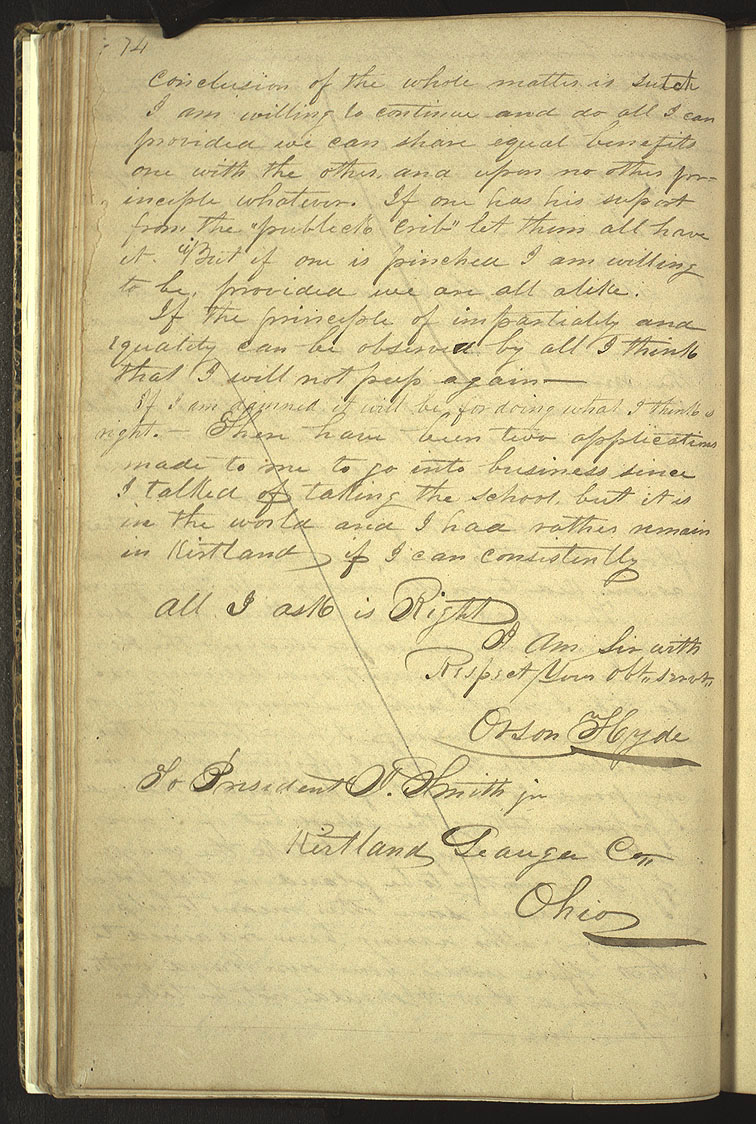 74
conclusion of the whole matter is sutch
I am willing to continue and do all I can
provided we can share equal benefits
one with the other, and upon no other prin-
inciple whatever. If one has his suport
from the "publick Crib" let them all have
it. But if one is pinched I am willing
to be, provided we are all alike.
If the principle of impartiality and
Equality can be observed by all I think
that I will not peep again—
If I am damned it will be for doing what I think is
right.— There have been two applications
made to me to go into business since
I talked of taking the school, but it is
in the world and I had rather remain
in Kirtland if I can consistently
all I ask is Right
I Am Sir with
Respect Your obt,, servt,,
Orson Hyde
To President J. Smith jr
Kirtland Geauga Co,,
Ohio